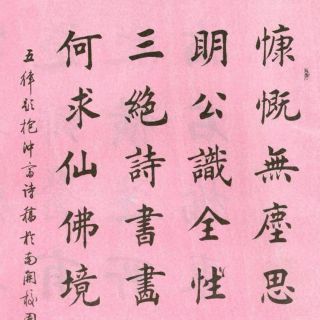 慷慨無塵思
明公識全性
三絕詩書畫
何求仙佛境
五律題抱沖齋詩稿於南開校園